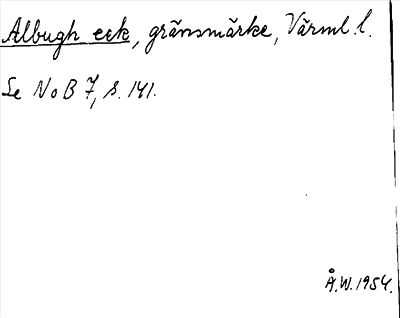 Albugh eek, gränsmärke, Värml. l.
Se NoB 7, s. 141.
Å.W. 1954.